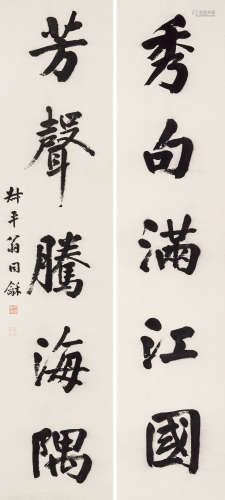 秀向滿江國
芳聲騰海隅
叔平翁同龢